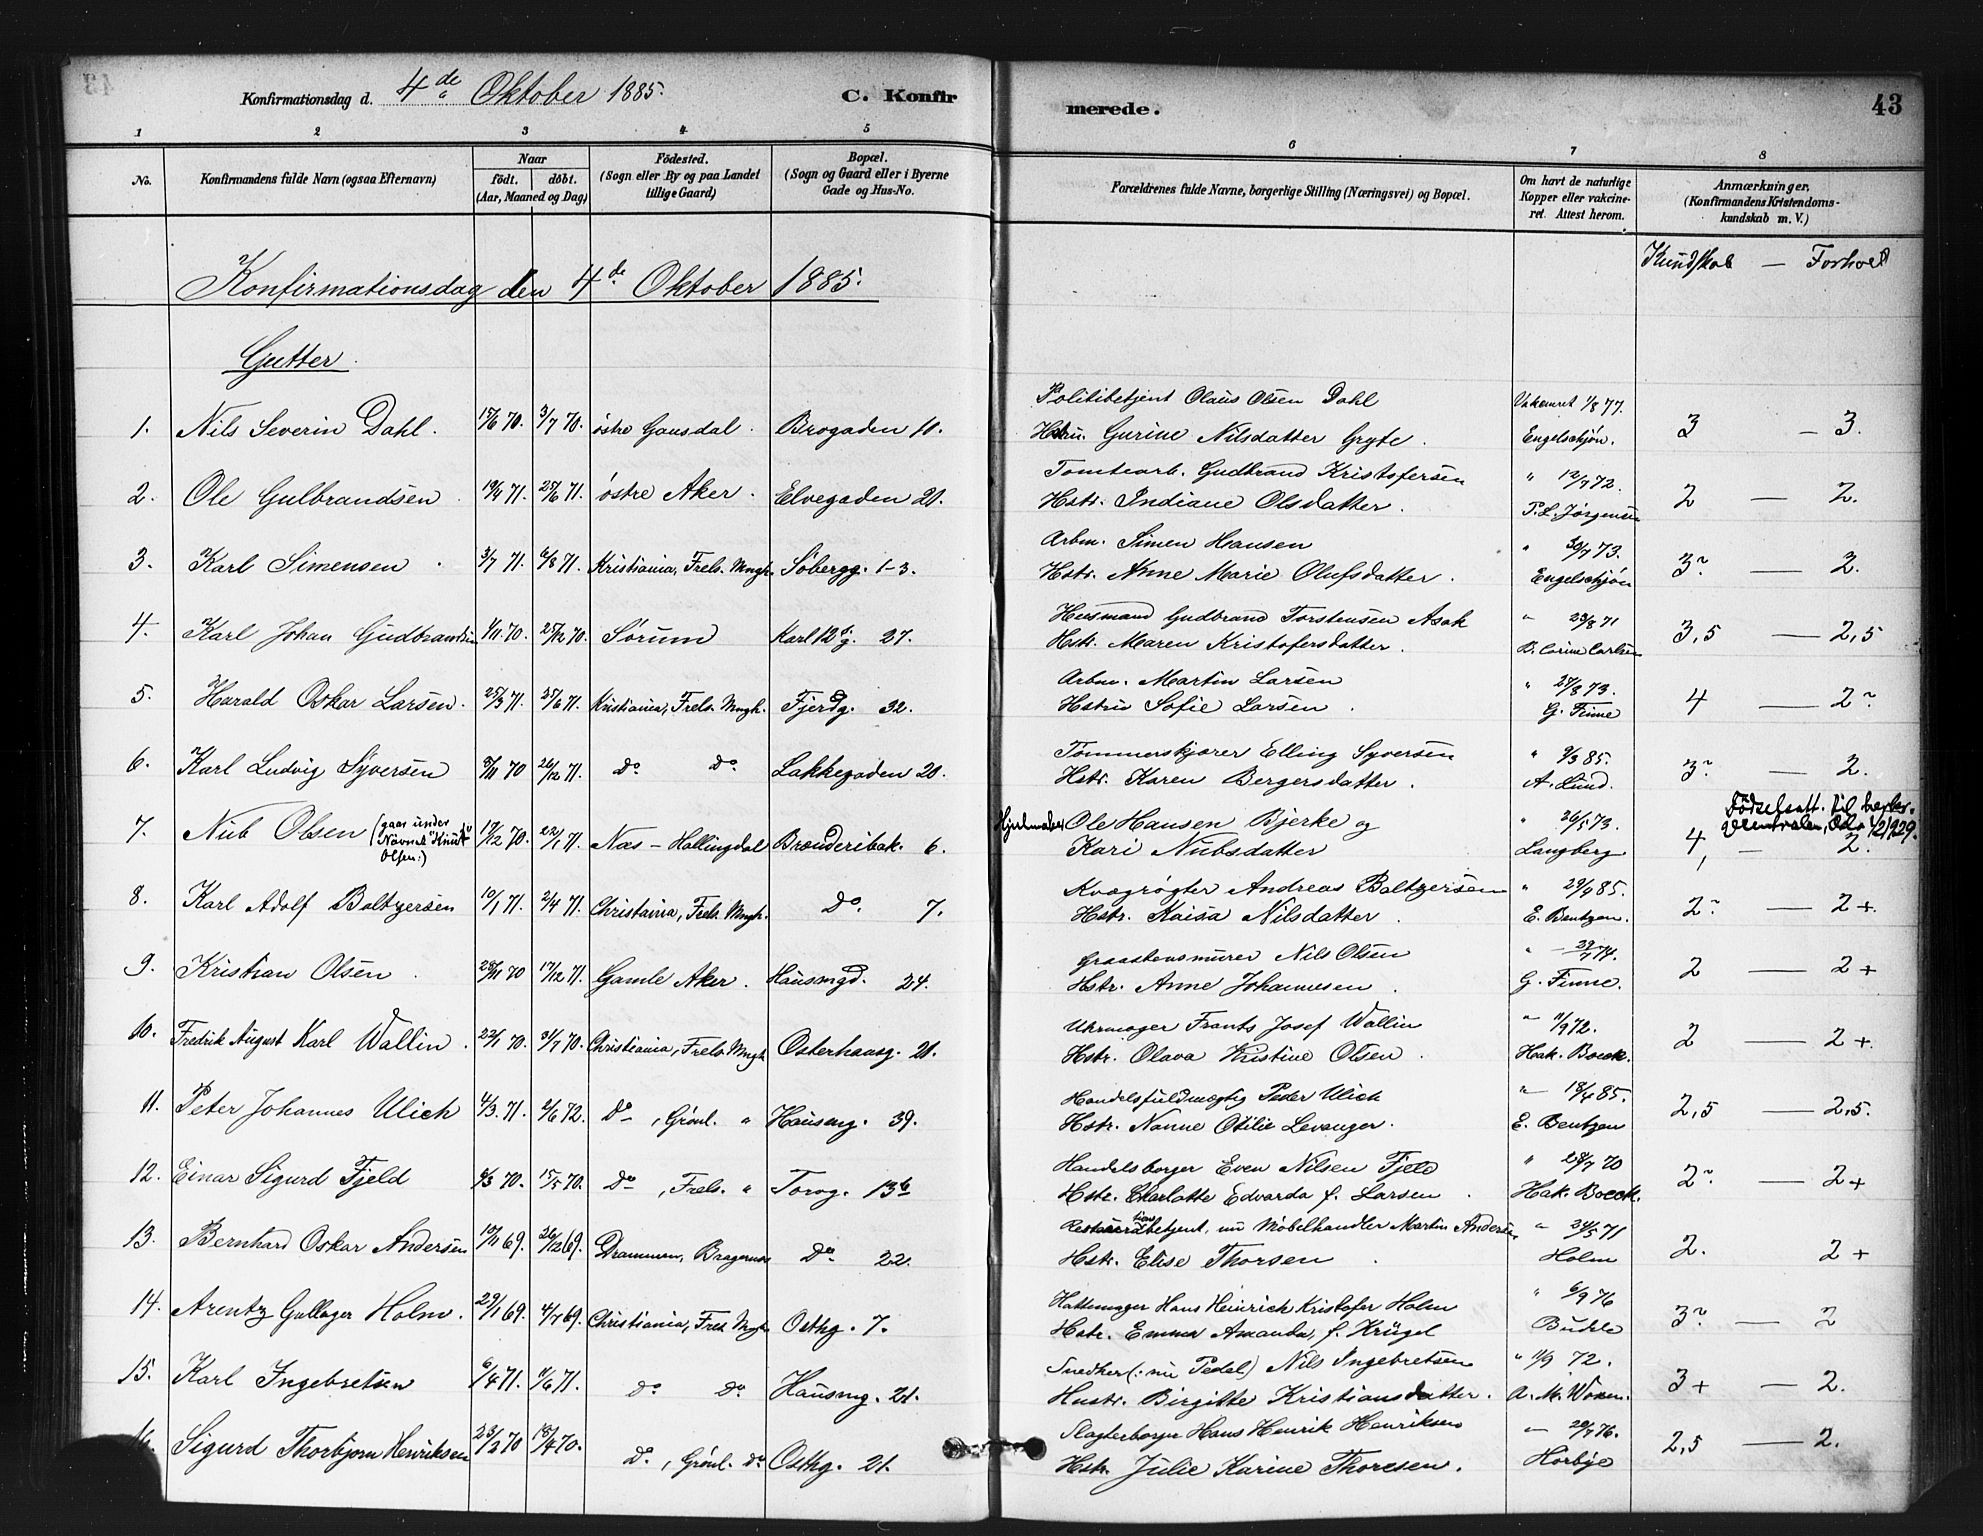 Konfirmationsdag d. 4de Oktober 1885. C. Konfir merede. 43
1 2 3 4 5 6 7 8
No. Konfirmandens fulde Navn (ogsaa Efternavn) Naar født. døbt. (Aar, Maaned og Dag) Födested. (Sogn eller By og paa Landet tillige Gaard) Bopæl. (Sogn og Gaard eller i Byerne Gade og Hus-No. Forældrenes fulde Navne, borgerlige Stilling (Næringsvei) og Bopæl. Om havt de naturlige Kopper eller vakcineret. Attest herom. Anmærkninger, (Konfirmandens Kristendomskundskab m. V.)
Kundskab — Forhold
Konfirmationsdag den 4de Oktober 1885.
Gutter.
Politibetjent Olaus Olsen Dahl Vakcineret 1/8 77.
1. Nils Severin Dahl. 15/6 70. 3/7 70. østre Gausdal. Brogaden 10. Hstru. Gurine Nilsdatter Gryte. Engelschjøn. 3 — 3.
Tomtearb. Gudbrand Kristofersen " 12/7 72.
2. Ole Gulbrandsen 19/4 71. 25/6 71. østre Aker. Elvegaden 20. Hstr. Indiane Olsdatter. P. L. Jørgensen 2 — 2.
Arbm. Simen Hansen " 30/7 73.
3. Karl Simensen 3/7 71. 6/8 71. Kristiania, Frels. Mngh. Søbergg. 1-3. Hstr. Anne Marie Olufsdatter. Engelschjøn 3 — 2.
Husmand Gudbrand Torstensen Asak " 23/8 71
4. Karl Johan Gudbrandsen 1/11 70. 25/12 70. Sørum Karl 12 g. 27. Hstr. Maren Kristofersdatter. Carlsen 3,5 — 2,5
Arbm. Martin Larsen " 27/8 73.
5. Harald Oskar Larsen. 25/3 71. 25/6 71. Kristiania, Frels. Mngh. Fjerdg. 32. Hstru Sofie Larsen. G. Finne 4 — 2
Tømmerskjører Elling Syversen " 9/3 85.
6. Karl Ludvig Syversen 8/11 70 26/12 71. do do Lakkegaden 20. Hstr. Karen Bergersdatter. A. Lund. 3 — 2.
Hjulmaker Ole Hansen Bjerke og " 26/5 73. Födselsatt. til
7. Nub Olsen (gaar under Navnet "Knut" Olsen:) 17/12 70. 22/1 71. Næs - Hallingdal Brænderibak. 6. Kari Nubsdatter Langberg 4, — 2.
Kvægrøgter Andreas Baltzersen " 29/4 85.
8. Karl Adolf Baltzersen 10/1 71. 2/4 71. Christiania, Frels. Mngh. Do. 7. Hstr. Kaisa Nilsdatter. E. Bentzen. 2 — 2+
Graastensmurer Nils Olsen "
9. Kristian Olsen 28/11 70 17/12 71. Gamle Aker. Hausmgd. 24. Hstr. Anne Johannesen. G. Finne. 2 — 2+
Uhrmager Frants Josef Wallin " 11/9 72.
10. Fredrik August Karl Wallin. 22/1 70. 31/7 70. Christiania, Frels. Mngh Osterhausg. 21. Hstr. Olava Kristine Olsen. Hak. Boeck. 2 — 2+
Handelsfuldmægtig Peder Ulich " 18/4 85.
11. Peter Johannes Ulich 4/3. 71. 2/6 72. Do, Grönl. " Hausmg. 39. Hstr. Nanne Otilie Levanger. E. Bentzen 2,5 — 2,5.
Handelsborger Even Nilsen Fjeld " 28/7 70
12. Einar Sigurd Fjeld 6/3 70. 15/5 70. Do, Frels. " Torvg. 13b Hstr. Charlotte Edvarda f. Larsen. Hak. Boeck. 2 — 2+
Restaurationsbetjent, nu Møbelhandler Martin Andersen " 24/5 71
13. Bernhard Oskar Andersen 10/11 69. 26/12 69. Drammen, Bragernes Do. 22. Hstr. Elise Thorsen. Holm 2. 2+
Hattemager Hans Heinrich Kristofer Holm " 6/9 76
14. Arentz Gullager Holm. 29/1 69. 4/7 69. Christiania, Frels Mngh Osthg. 7. Hstr. Emma Amanda, f. Krügel Budde 3 — 2
Snedker (: nu Pedel) Nils Ingebretsen " 11/9 72.
15. Karl Ingebretsen 6/4 71. 11/6 71. do do Hausmg. 21. Hustr. Birgitte Kristiansdatter. A. M. Woxen. 3+ — 2.
Slagterborger Hans Henrik Henriksen " 20/7 76.
16. Sigurd Thorbjørn Henriksen 23/2 70 18/4 70. do, Grönl. do Osthg. 21. Hstr. Julie Karine Thoresen. Horbye 2,5 — 2.